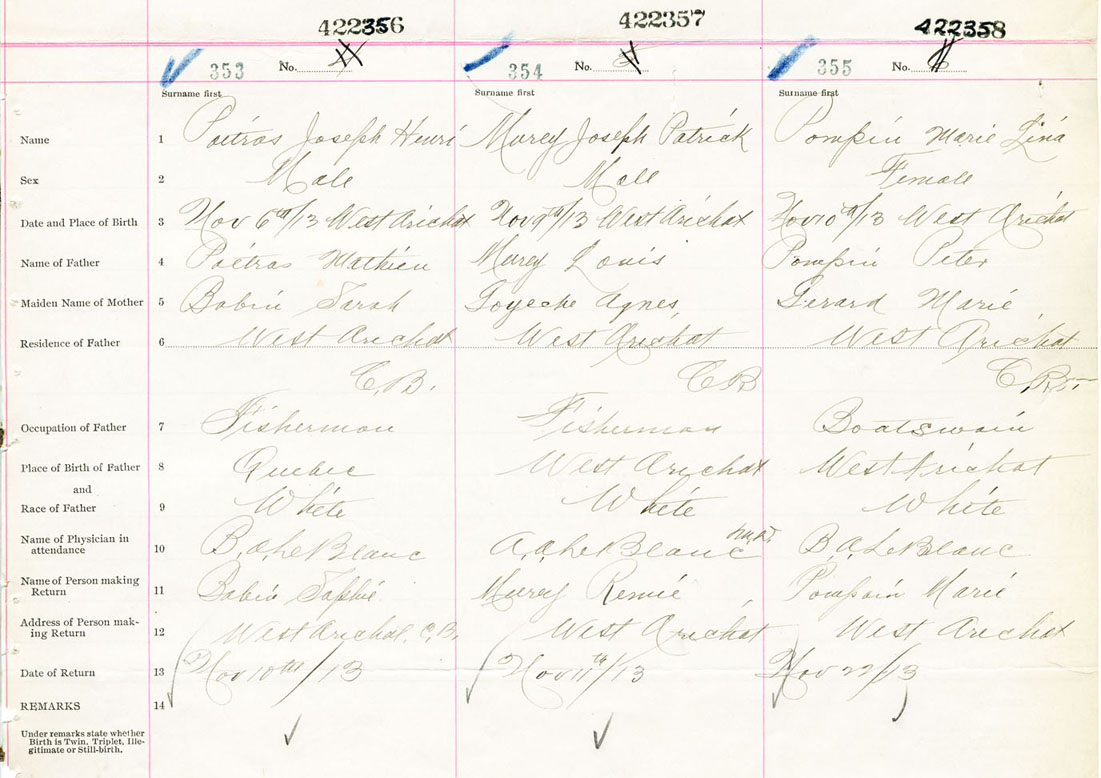 422356 422357 422358
353 No. 354 No. 355 No.
Surname first Surname first Surname first
Name 1 Poitras Joseph Henri Murey Joseph Patrick Pompin Marie Lina
Sex 2 Male Male Female
Date and Place of Birth 3 Nov 6th/13 West Arichat Nov 9th/13 West Arichat Nov 10th/13 West Arichat
Name of Father 4 Poitras Mathieu Murey Louis Pompin Peter
Maiden Name of Mother 5 Babin Sarah Goyeche Agnes Gerard Marie
Residence of Father 6 West Arichat West Arichat West Arichat
C.B. CB
Occupation of Father 7 Fisherman Fisherman Boatswain
Place of Birth of Father 8 Quebec West Arichat West Arichat
and
Race of Father 9 White White White
Name of Physician in
attendance 10 B.A. LeBlanc LeBlanc B.A. LeBlanc
Name of Person making
Return 11 Babin Sophie Murey Remie Pompin Marie
Address of Person mak-
ing Return 12 West Arichat, C.B. West Arichat West Arichat
Date of Return 13 Nov 10th/13 Nov 11th/13 Nov 22/13
REMARKS 14
Under remarks state whether
Birth is Twin, Triplet, Ille-
gitimate or Still-birth.